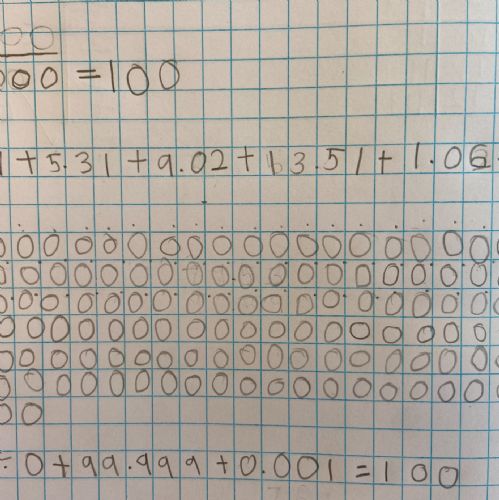 00
000=100
1+5.31+9.02+13.51+1.06
0000000000000000000
0000000000000000000
0000000000000000000
0000000000000000000
0000000000000000000
0000000000000000000
00
÷0+99.999+0.001=100